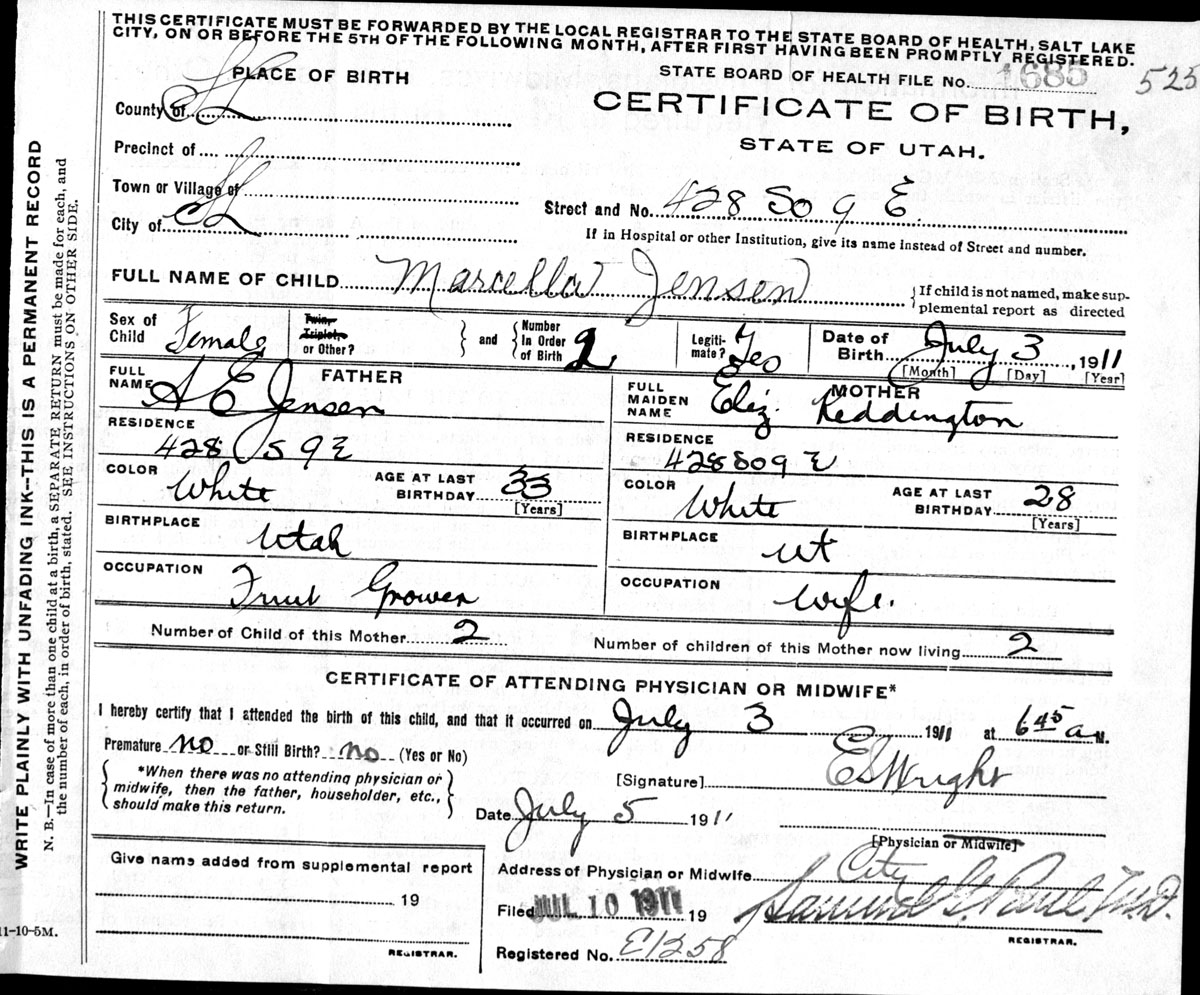 THIS CERTIFICATE MUST BE FORWARDED BY THE LOCAL REGISTRAR TO THE STATE BOARD OF HEALTH, SALT LAKE
CITY, ON OR BEFORE THE 5TH OF THE FOLLOWING MONTH, AFTER FIRST HAVING BEEN PROMPTLY REGISTERED.
PLACE OF BIRTH
STATE BOARD OF HEALTH FILE No. 1685 525
County of SL
CERTIFICATE OF BIRTH,
STATE OF UTAH.
Precinct of
Town or Village of
City of SL
Street and No. 428 So 9 E
If in Hospital or other Institution, give its name instead of Street and number.
FULL NAME OF CHILD Marcella Jensen
{If child is not named, make sup-
plemental report as directed
Sex of Child Female
Twin, Triplet, or Other?
} and { Number In Order of Birth 2
Legiti-mate? Yes
Date of Birth July 3, 1911
[Month] [Day] [Year]
FATHER
FULL NAME A E Jensen
MOTHER
FULL MAIDEN NAME Eliz. Reddington
RESIDENCE
428 S 9 E
RESIDENCE
428 So 9 E
COLOR White
AGE AT LAST BIRTHDAY 33
[Years]
COLOR White
AGE AT LAST BIRTHDAY 28
[Years]
BIRTHPLACE
Utah
BIRTHPLACE
Ut
OCCUPATION
Fruit Grower
OCCUPATION
Wife.
Number of Child of this Mother 2
Number of children of this Mother now living 2
CERTIFICATE OF ATTENDING PHYSICIAN OR MIDWIFE*
I hereby certify that I attended the birth of this child, and that it occurred on July 3 1911 at 6 45 a M.
Premature no or Still Birth? no (Yes or No)
{ *When there was no attending physician or
midwife, then the father, householder, etc.,
should make this return. }
[Signature] E S Wright
Date July 5 1911
[Physician or Midwife]
Give name added from supplemental report
19
REGISTRAR.
Address of Physician or Midwife City
Filed JUL 10 1911 19
Samuel G. Paul M.D.
REGISTRAR.
Registered No. E1258
11-10-5M.
WRITE PLAINLY WITH UNFADING INK—THIS IS A PERMANENT RECORD
N. B.—In case of more than one child at a birth, a SEPARATE RETURN must be made for each, and
the number of each, in order of birth, stated. SEE INSTRUCTIONS ON OTHER SIDE.